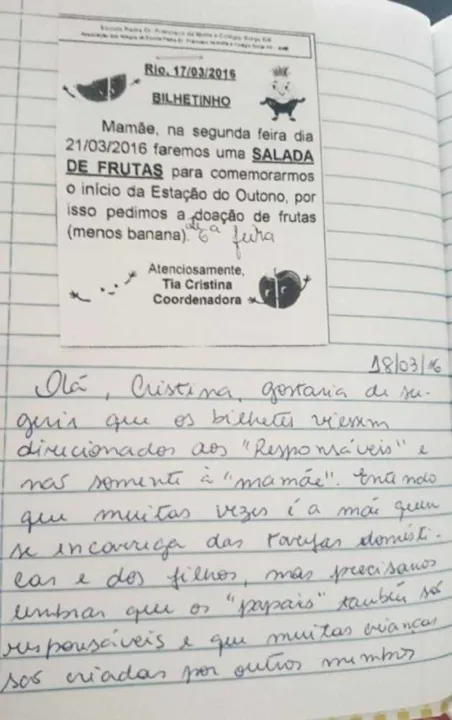 Rio, 17/03/2016
BILHETINHO
Mamãe, na segunda feira dia
21/03/2016 faremos uma SALADA
DE FRUTAS para comemorarmos
o início da Estação do Outono, por
isso pedimos a doação de frutas
(menos banana). até 6ª feira
Atenciosamente,
Tia Cristina
Coordenadora
18/03/16
Olá, Cristina, gostaria de su-
gerir que os bilhetes viessem
direcionados aos "Responsáveis" e
não somente à "mamãe". Entendo
que muitas vezes é a mãe quem
se encarrega das tarefas domésti-
cas e dos filhos, mas precisamos
lembrar que os "papais" também são
responsáveis e que muitas crianças
são criadas por outros membros